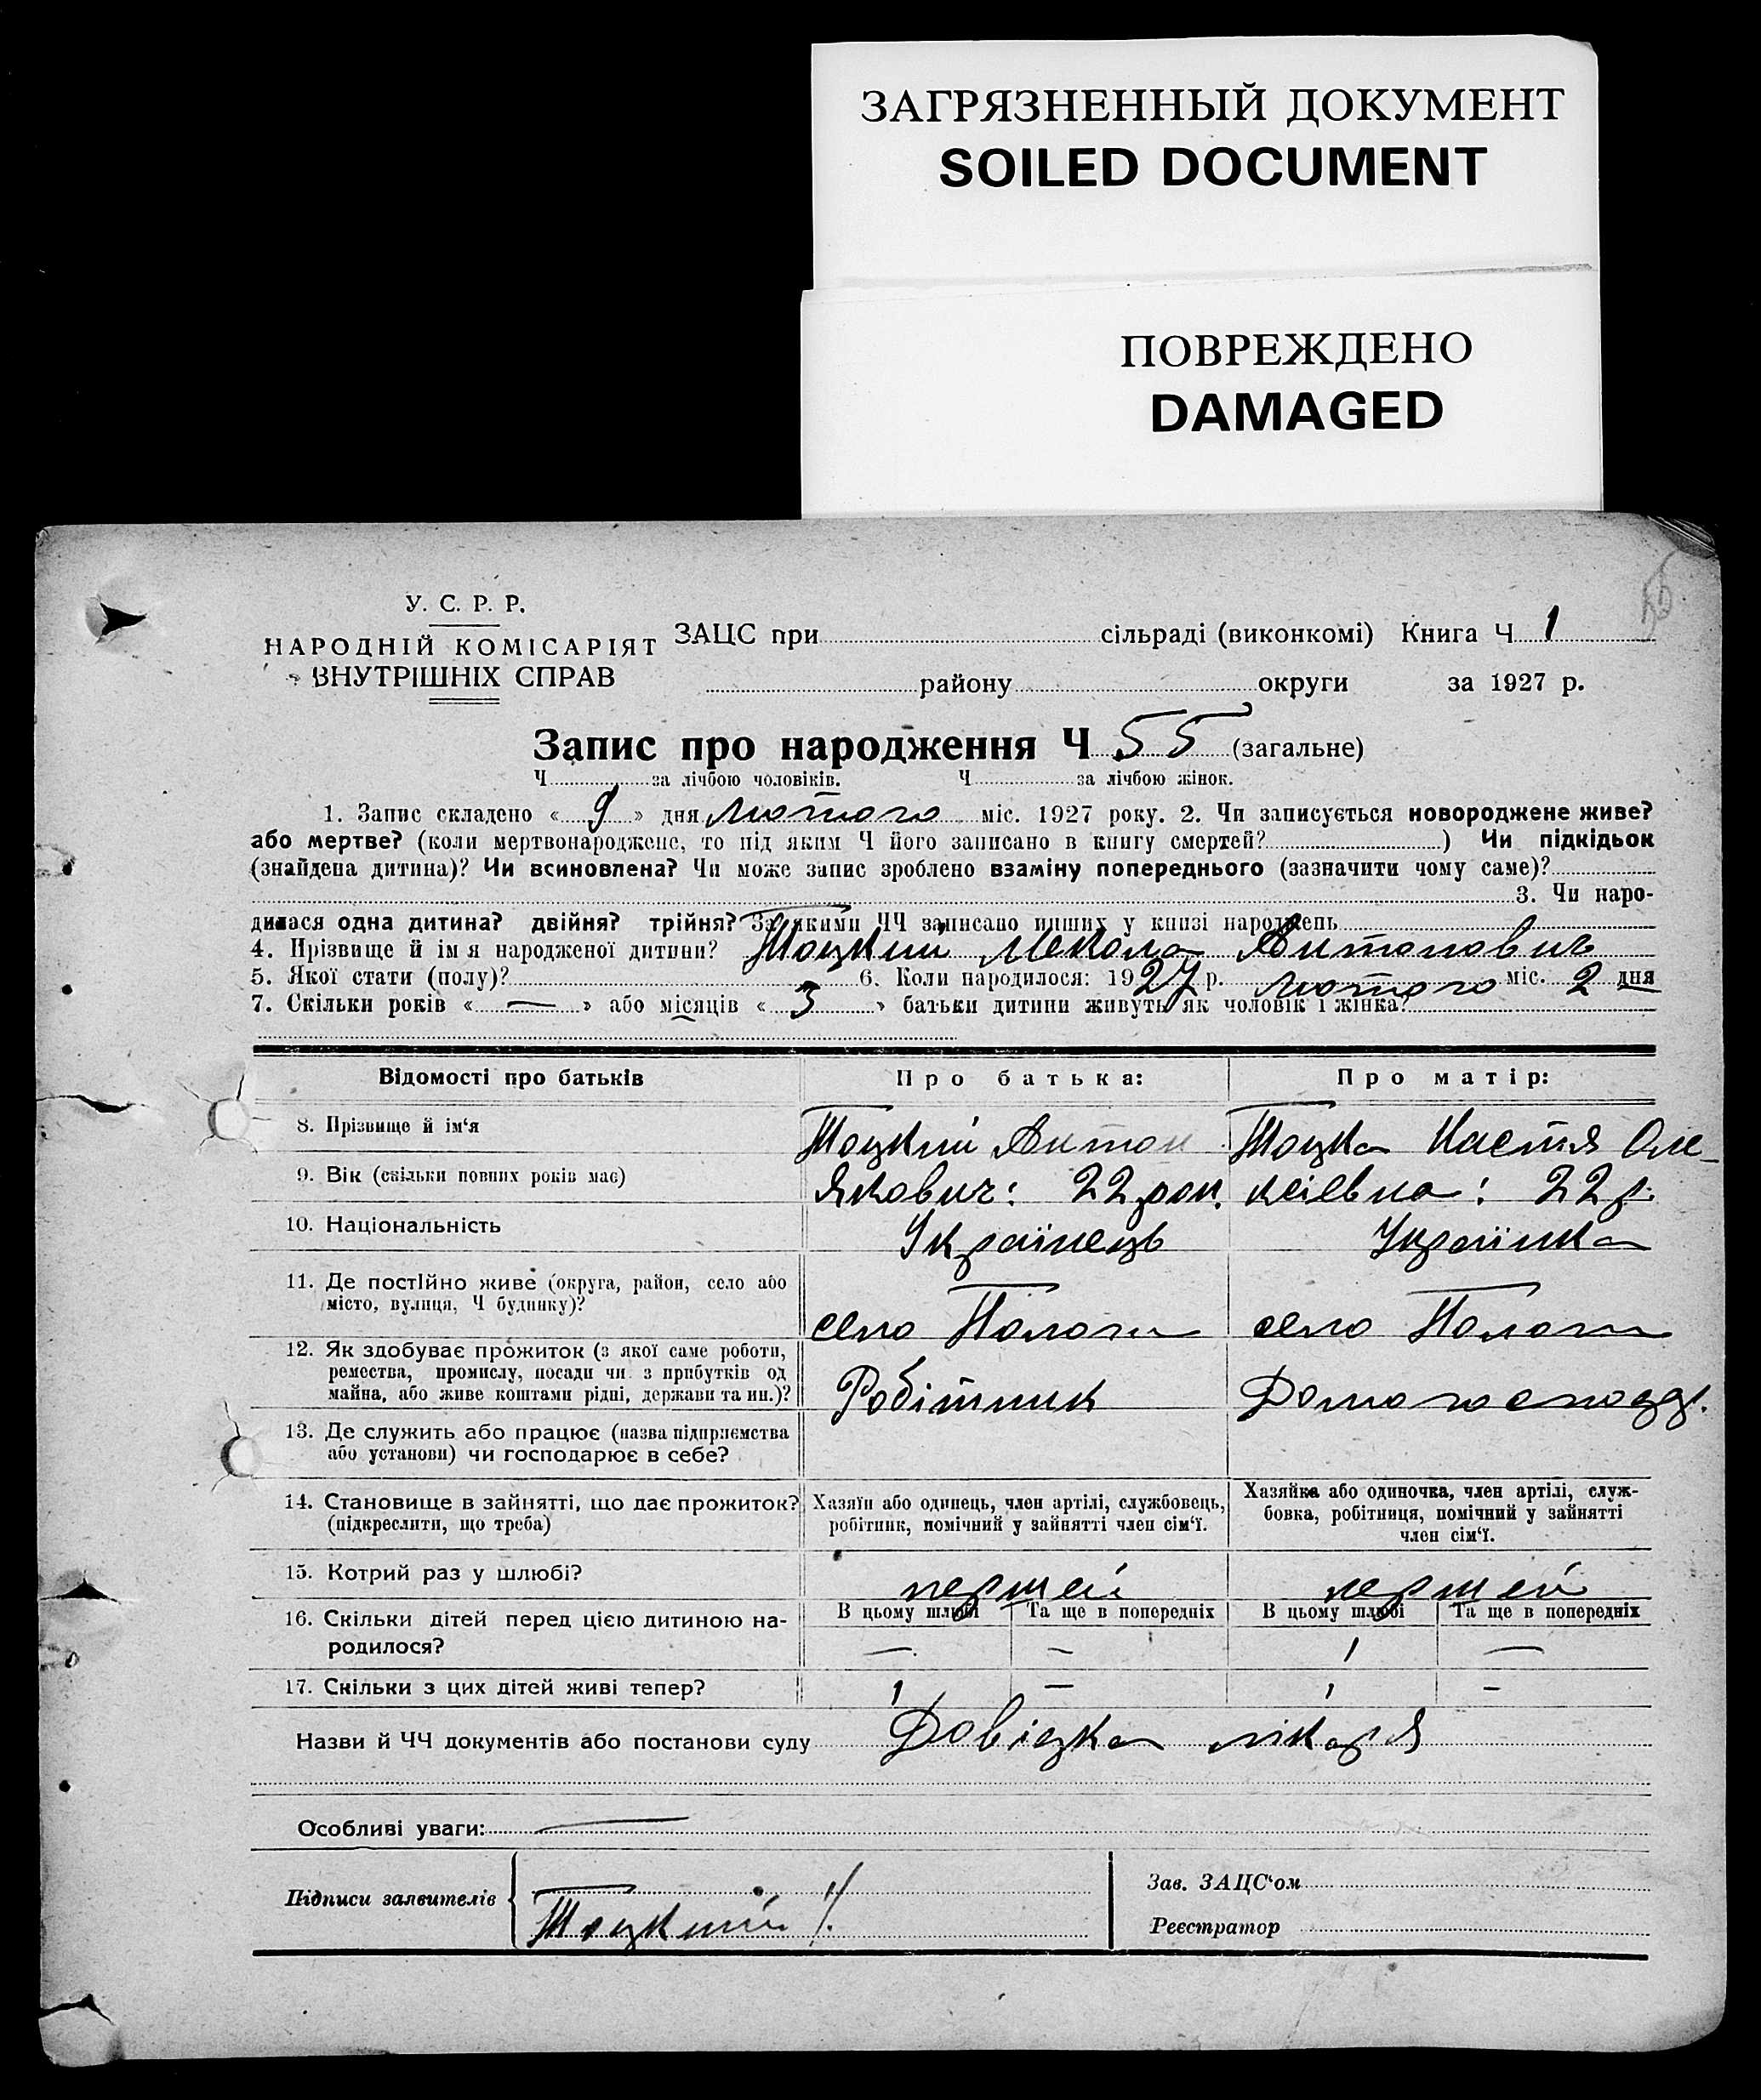 ЗАГРЯЗНЕННЫЙ ДОКУМЕНТ
SOILED DOCUMENT
ПОВРЕЖДЕНО
DAMAGED
У. С. Р. Р.
НАРОДНІЙ КОМІСАРІЯТ
ВНУТРІШНІХ СПРАВ
ЗАЦС при сільраді (виконкомі) Книга Ч 1
району округи за 1927 р.
Запис про народження Ч 55 (загальне)
Ч за лічбою чоловіків. Ч за лічбою жінок.
1. Запис складено « 9 » дня лютого міс. 1927 року. 2. Чи записується новороджене живе?
або мертве? (коли мертвонароджене, то під яким Ч його записано в книгу смертей? ) Чи підкідьок
(знайдена дитина)? Чи всиновлена? Чи може запис зроблено взаміну попереднього (зазначити чому саме)?
3. Чи наро-
дилася одна дитина? двійня? трійня? За якими ЧЧ записано инших у книзі народжень
4. Прізвище й ім я народженої дитини? Тоцкий Мекола Антонович
5. Якої стати (полу)? 6. Коли народилося: 1927 р. лютого міс. 2 дня
7. Скільки років « — » або місяців « 3 » батьки дитини живуть як чоловік і жінка?
Відомості про батьків Про батька: Про матір:
8. Прізвище й ім‘я Тоцкий Антон Тоцка Настя Оле-
9. Вік (скільки повних років має) Якович: 22 рок. ксіевна: 22 р.
10. Національність Українець Українка
11. Де постІйно живе (округа, район, село або
місто, вулиця, Ч будинку)? село Пологи село Пологи
12. Як здобуває прожиток (з якої саме роботи,
ремества, промислу, посади чи з прибутків од
майна, або живе коштами рідні, держави та ин.)? Робітник Домогосподар.
13. Де служить або працює (назва підприємства
або установи) чи господарює в себе?
14. Становище в зайнятті, що дає прожиток?
(підкреслити, що треба)
Хазяїн або одинець, член артілі, службовець,
робітник, помічний у зайнятті член сім‘ї.
Хазяйка або одиночка, член артілі, служ-
бовка, робітниця, помічний у зайнятті
член сім‘ї.
15. Котрий раз у шлюбі? першей першей
16. Скільки дітей перед цією дитиною на-
родилося?
В цьому шлюбі Та ще в попередніх В цьому шлюбі Та ще в попередніх
— — 1 —
17. Скільки з цих дітей живі тепер? 1 — 1 —
Назви й ЧЧ документів або постанови суду Довіцка лікаря
Особливі уваги: —
Підписи заявителів Тоцкий
Зав. ЗАЦС‘ом
Реєстратор